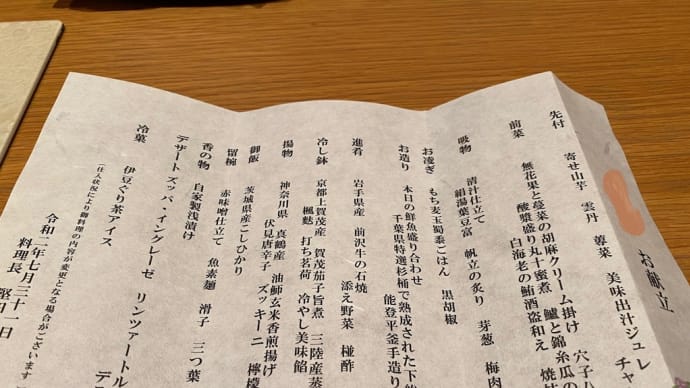 お献立
先付　寄せ山芋　雲丹　蓴菜　美味出汁ジュレ　チャ
前菜　無花果と蔓菜の胡麻クリーム掛け　穴子八
酸漿盛り丸十蜜煮　鱸と錦糸瓜の
白海老の鮪酒盗和え　焼
吸物　清汁仕立て
絹湯葉豆富　帆立の炙り　芽葱　梅肉
お凌ぎ　もち麦玉蜀黍ごはん　黒胡椒
お造り　本日の鮮魚盛り合わせ
千葉県特選杉桶で熟成された下
能登平釜手造り
進肴　岩手県産　前沢牛の石焼
添え野菜　椪酢
冷し鉢　京都上賀茂産　賀茂茄子旨煮　三陸産蒸
楓麩　打ち茗荷　冷やし美味餡
揚物　神奈川県　真鶴産　油鰤玄米香煎揚げ
伏見唐辛子　ズッキーニ　檸檬
御飯　茨城県産こしひかり
留椀　赤味噌仕立て　魚素麺　滑子　三つ葉
香の物　自家製浅漬け
デザート　ズッパ・イングレーゼ　リンツァートル
デ
冷菓　伊豆ぐり茶アイス
（仕入状況により御料理の内容が変更となる場合がございます
令和二年七月三十一日
料理長　堅日